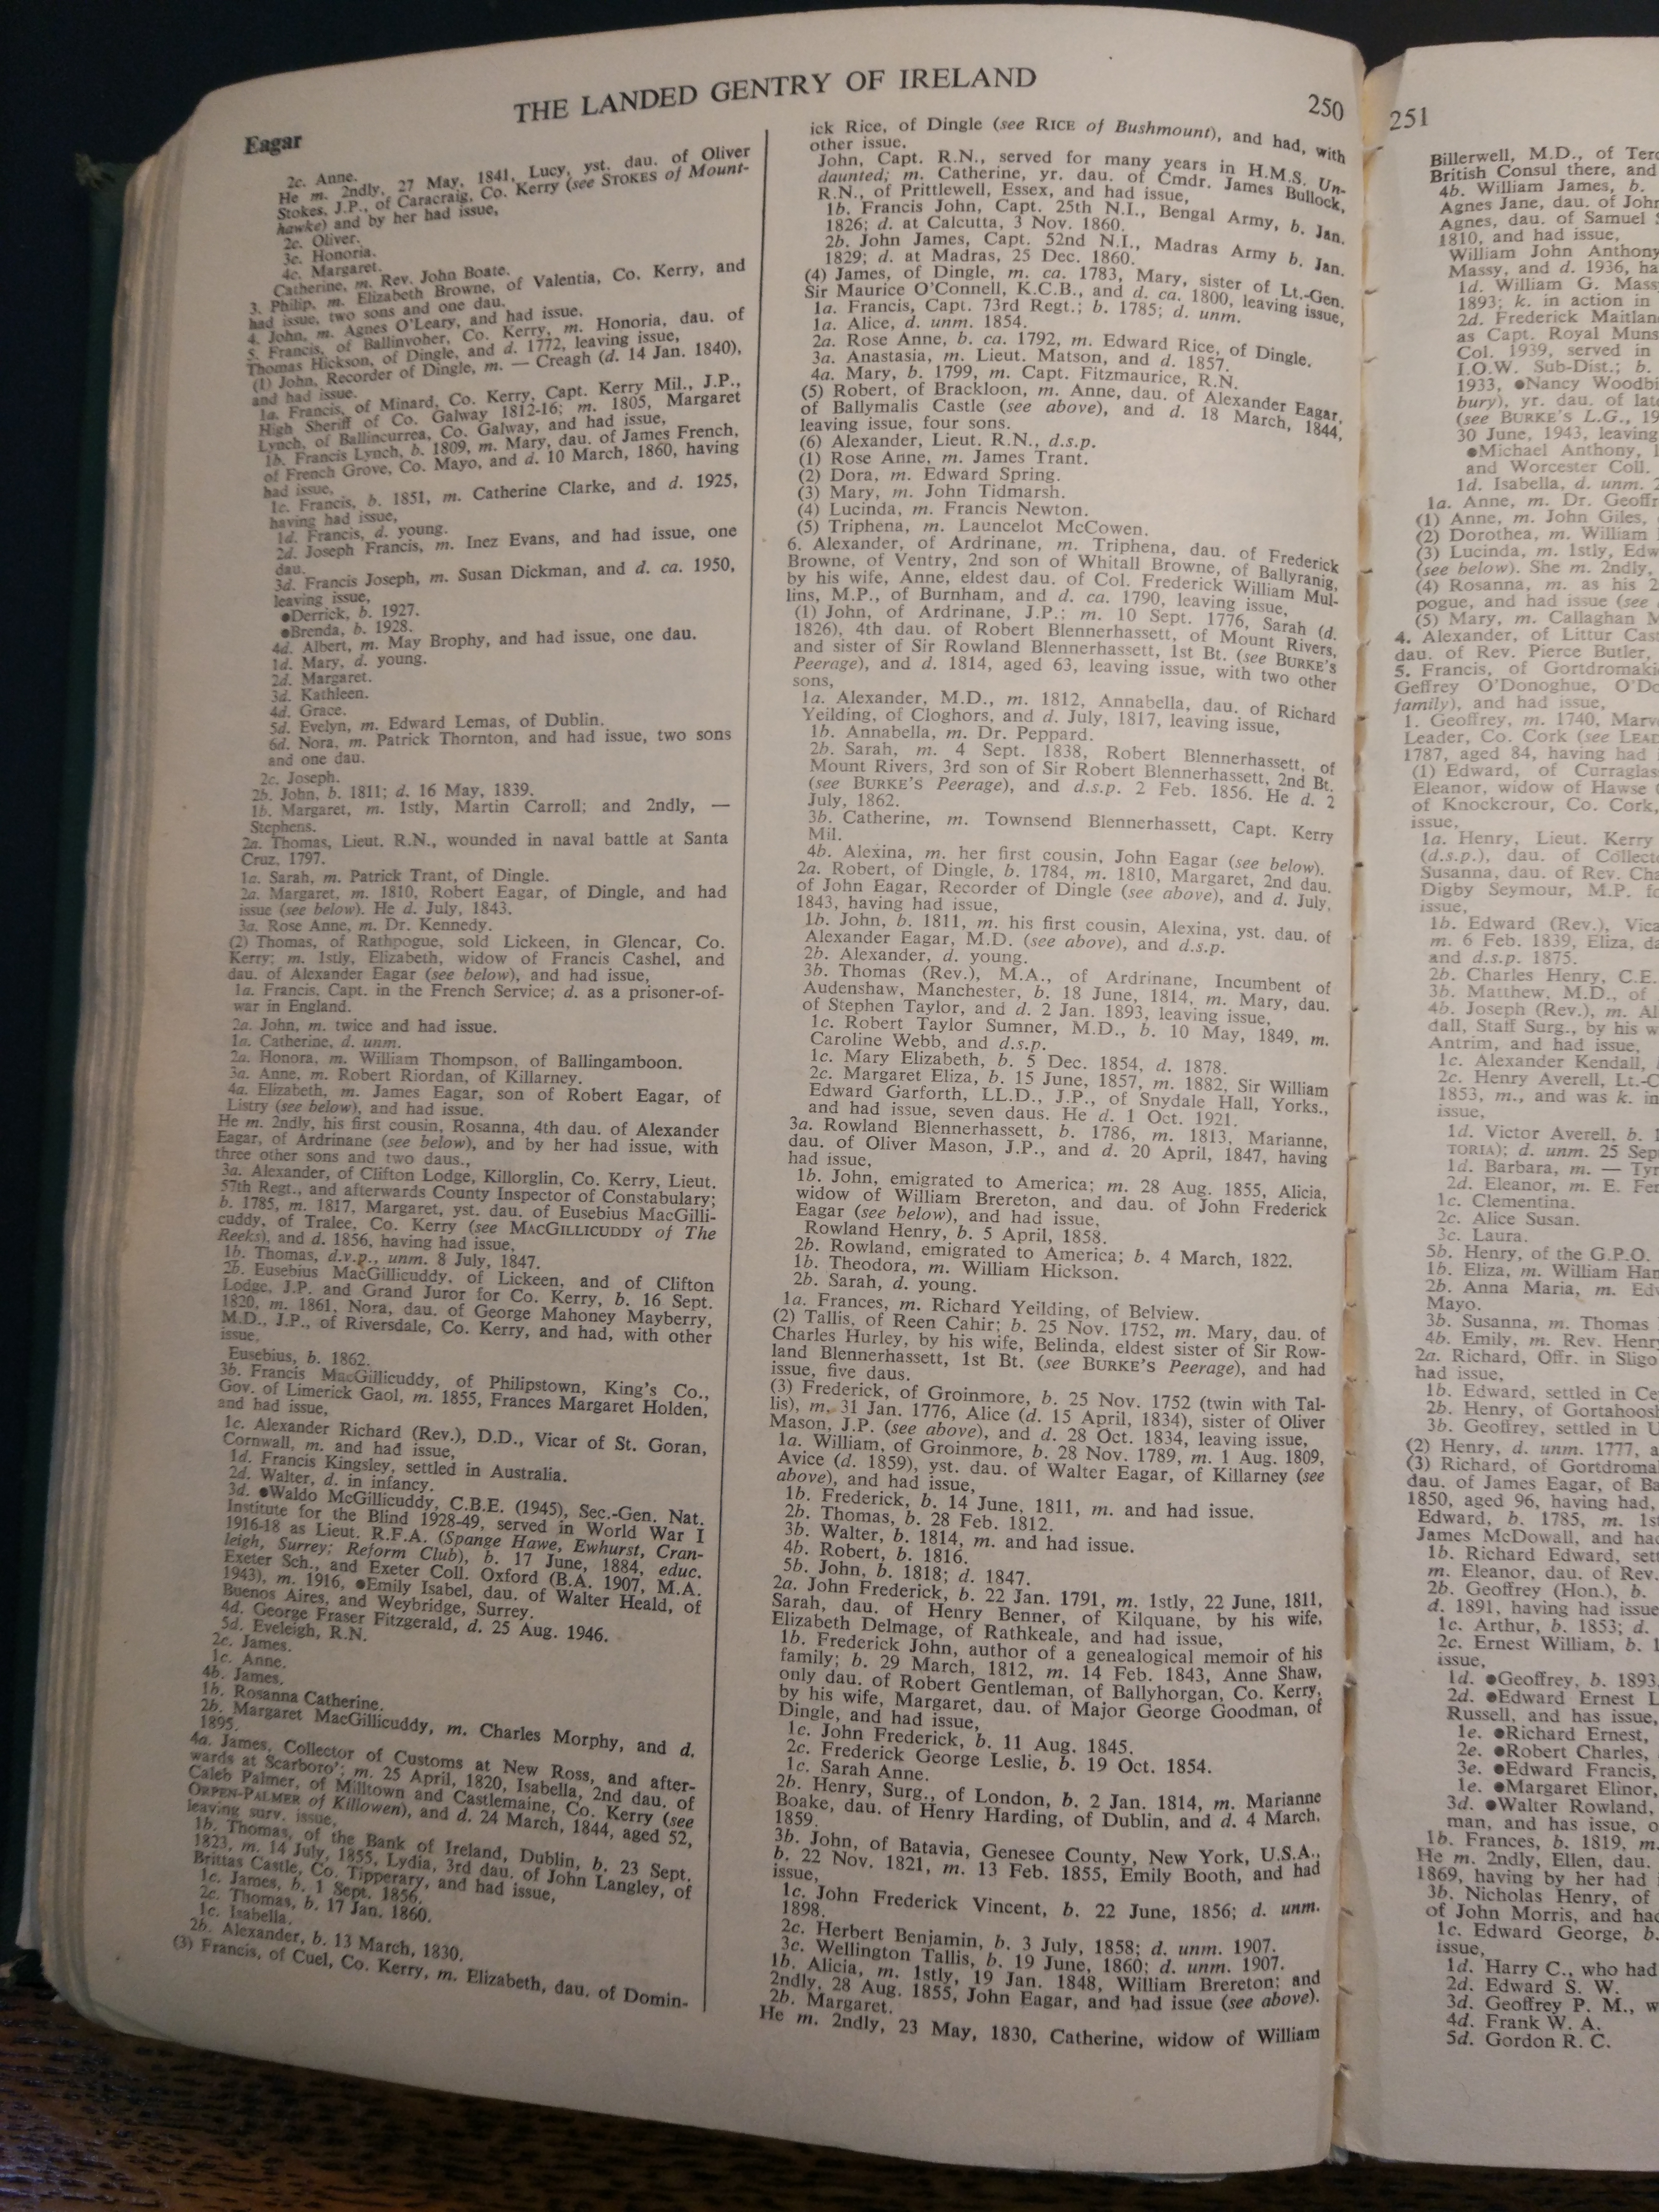 THE LANDED GENTRY OF IRELAND
250
Eagar
2c. Anne.
He m. 2ndly, 27 May, 1841, Lucy, yst. dau. of Oliver
Stokes, J.P., of Caracraig, Co. Kerry (see STOKES of Mount-
hawke) and by her had issue,
2c. Oliver.
3c. Honoria.
4c. Margaret.
Catherine, m. Rev. John Boate.
3. Philip, m. Elizabeth Browne, of Valentia, Co. Kerry, and
had issue, two sons and one dau.
4. John, m. Agnes O'Leary, and had issue.
5. Francis, of Ballinvoher, Co. Kerry, m. Honoria, dau. of
Thomas Hickson, of Dingle, and d. 1772, leaving issue,
(1) John, Recorder of Dingle, m. — Creagh (d. 14 Jan. 1840),
and had issue.
1a. Francis, of Minard, Co. Kerry, Capt. Kerry Mil., J.P.,
High Sheriff of Co. Galway 1812-16; m. 1805, Margaret
Lynch, of Ballincurrea, Co. Galway, and had issue,
1b. Francis Lynch, b. 1809, m. Mary, dau. of James French,
of French Grove, Co. Mayo, and d. 10 March, 1860, having
had issue,
1c. Francis, b. 1851, m. Catherine Clarke, and d. 1925,
having had issue,
1d. Francis, d. young.
2d. Joseph Francis, m. Inez Evans, and had issue, one
dau.
3d. Francis Joseph, m. Susan Dickman, and d. ca. 1950,
leaving issue,
●Derrick, b. 1927.
●Brenda, b. 1928.
4d. Albert, m. May Brophy, and had issue, one dau.
1d. Mary, d. young.
2d. Margaret.
3d. Kathleen.
4d. Grace.
5d. Evelyn, m. Edward Lemas, of Dublin.
6d. Nora, m. Patrick Thornton, and had issue, two sons
and one dau.
2c. Joseph.
2b. John, b. 1811; d. 16 May, 1839.
1b. Margaret, m. 1stly, Martin Carroll; and 2ndly, —
Stephens.
2a. Thomas, Lieut. R.N., wounded in naval battle at Santa
Cruz, 1797.
1a. Sarah, m. Patrick Trant, of Dingle.
2a. Margaret, m. 1810, Robert Eagar, of Dingle, and had
issue (see below). He d. July, 1843.
3a. Rose Anne, m. Dr. Kennedy.
(2) Thomas, of Rathpogue, sold Lickeen, in Glencar, Co.
Kerry; m. 1stly, Elizabeth, widow of Francis Cashel, and
dau. of Alexander Eagar (see below), and had issue,
1a. Francis, Capt. in the French Service; d. as a prisoner-of-
war in England.
2a. John, m. twice and had issue.
1a. Catherine, d. unm.
2a. Honora, m. William Thompson, of Ballingamboon.
3a. Anne, m. Robert Riordan, of Killarney.
4a. Elizabeth, m. James Eagar, son of Robert Eagar, of
Listry (see below), and had issue.
He m. 2ndly, his first cousin, Rosanna, 4th dau. of Alexander
Eagar, of Ardrinane (see below), and by her had issue, with
three other sons and two daus.,
3a. Alexander, of Clifton Lodge, Killorglin, Co. Kerry, Lieut.
57th Regt., and afterwards County Inspector of Constabulary;
b. 1785, m. 1817, Margaret, yst. dau. of Eusebius MacGilli-
cuddy, of Tralee, Co. Kerry (see MACGILLICUDDY of The
Reeks), and d. 1856, having had issue,
1b. Thomas, d.v.p., unm. 8 July, 1847.
2b. Eusebius MacGillicuddy, of Lickeen, and of Clifton
Lodge, J.P. and Grand Juror for Co. Kerry, b. 16 Sept.
1820, m. 1861, Nora, dau. of George Mahoney Mayberry,
M.D., J.P., of Riversdale, Co. Kerry, and had, with other
issue,
Eusebius, b. 1862.
3b. Francis MacGillicuddy, of Philipstown, King's Co.,
Gov. of Limerick Gaol, m. 1855, Frances Margaret Holden,
and had issue,
1c. Alexander Richard (Rev.), D.D., Vicar of St. Goran,
Cornwall, m. and had issue,
1d. Francis Kingsley, settled in Australia.
2d. Walter, d. in infancy.
3d. ●Waldo McGillicuddy, C.B.E. (1945), Sec.-Gen. Nat.
Institute for the Blind 1928-49, served in World War I
1916-18 as Lieut. R.F.A. (Spange Hawe, Ewhurst, Cran-
leigh, Surrey; Reform Club), b. 17 June, 1884, educ.
Exeter Sch., and Exeter Coll. Oxford (B.A. 1907, M.A.
1943), m. 1916, ●Emily Isabel, dau. of Walter Heald, of
Buenos Aires, and Weybridge, Surrey.
4d. George Fraser Fitzgerald, d. 25 Aug. 1946.
5d. Eveleigh, R.N.
2c. James.
1c. Anne.
4b. James.
1b. Rosanna Catherine.
2b. Margaret MacGillicuddy, m. Charles Morphy, and d.
1895.
4a. James, Collector of Customs at New Ross, and after-
wards at Scarboro'; m. 25 April, 1820, Isabella, 2nd dau. of
Caleb Palmer, of Milltown and Castlemaine, Co. Kerry (see
ORPEN-PALMER of Killowen), and d. 24 March, 1844, aged 52,
leaving surv. issue,
1b. Thomas, of the Bank of Ireland, Dublin, b. 23 Sept.
1823, m. 14 July, 1855, Lydia, 3rd dau. of John Langley, of
Brittas Castle, Co. Tipperary, and had issue,
1c. James, b. 1 Sept. 1856.
2c. Thomas, b. 17 Jan. 1860.
1c. Isabella.
2b. Alexander, b. 13 March, 1830.
(3) Francis, of Cuel, Co. Kerry, m. Elizabeth, dau. of Domin-
ick Rice, of Dingle (see RICE of Bushmount), and had, with
other issue.
John, Capt. R.N., served for many years in H.M.S. Un-
daunted; m. Catherine, yr. dau. of Cmdr. James Bullock,
R.N., of Prittlewell, Essex, and had issue,
1b. Francis John, Capt. 25th N.I., Bengal Army, b. Jan.
1826; d. at Calcutta, 3 Nov. 1860.
2b. John James, Capt. 52nd N.I., Madras Army b. Jan.
1829; d. at Madras, 25 Dec. 1860.
(4) James, of Dingle, m. ca. 1783, Mary, sister of Lt.-Gen.
Sir Maurice O'Connell, K.C.B., and d. ca. 1800, leaving issue,
1a. Francis, Capt. 73rd Regt.; b. 1785; d. unm.
1a. Alice, d. unm. 1854.
2a. Rose Anne, b. ca. 1792, m. Edward Rice, of Dingle.
3a. Anastasia, m. Lieut. Matson, and d. 1857.
4a. Mary, b. 1799, m. Capt. Fitzmaurice, R.N.
(5) Robert, of Brackloon, m. Anne, dau. of Alexander Eagar,
of Ballymalis Castle (see above), and d. 18 March, 1844,
leaving issue, four sons.
(6) Alexander, Lieut. R.N., d.s.p.
(1) Rose Anne, m. James Trant.
(2) Dora, m. Edward Spring.
(3) Mary, m. John Tidmarsh.
(4) Lucinda, m. Francis Newton.
(5) Triphena, m. Launcelot McCowen.
6. Alexander, of Ardrinane, m. Triphena, dau. of Frederick
Browne, of Ventry, 2nd son of Whitall Browne, of Ballyranig,
by his wife, Anne, eldest dau. of Col. Frederick William Mul-
lins, M.P., of Burnham, and d. ca. 1790, leaving issue,
(1) John, of Ardrinane, J.P.; m. 10 Sept. 1776, Sarah (d.
1826), 4th dau. of Robert Blennerhassett, of Mount Rivers,
and sister of Sir Rowland Blennerhassett, 1st Bt. (see BURKE'S
Peerage), and d. 1814, aged 63, leaving issue, with two other
sons,
1a. Alexander, M.D., m. 1812, Annabella, dau. of Richard
Yeilding, of Cloghors, and d. July, 1817, leaving issue,
1b. Annabella, m. Dr. Peppard.
2b. Sarah, m. 4 Sept. 1838, Robert Blennerhassett, of
Mount Rivers, 3rd son of Sir Robert Blennerhassett, 2nd Bt.
(see BURKE'S Peerage), and d.s.p. 2 Feb. 1856. He d. 2
July, 1862.
3b. Catherine, m. Townsend Blennerhassett, Capt. Kerry
Mil.
4b. Alexina, m. her first cousin, John Eagar (see below).
2a. Robert, of Dingle, b. 1784, m. 1810, Margaret, 2nd dau.
of John Eagar, Recorder of Dingle (see above), and d. July,
1843, having had issue,
1b. John, b. 1811, m. his first cousin, Alexina, yst. dau. of
Alexander Eagar, M.D. (see above), and d.s.p.
2b. Alexander, d. young.
3b. Thomas (Rev.), M.A., of Ardrinane, Incumbent of
Audenshaw, Manchester, b. 18 June, 1814, m. Mary, dau.
of Stephen Taylor, and d. 2 Jan. 1893, leaving issue,
1c. Robert Taylor Sumner, M.D., b. 10 May, 1849, m.
Caroline Webb, and d.s.p.
1c. Mary Elizabeth, b. 5 Dec. 1854, d. 1878.
2c. Margaret Eliza, b. 15 June, 1857, m. 1882, Sir William
Edward Garforth, LL.D., J.P., of Snydale Hall, Yorks.,
and had issue, seven daus. He d. 1 Oct. 1921.
3a. Rowland Blennerhassett, b. 1786, m. 1813, Marianne,
dau. of Oliver Mason, J.P., and d. 20 April, 1847, having
had issue,
1b. John, emigrated to America; m. 28 Aug. 1855, Alicia,
widow of William Brereton, and dau. of John Frederick
Eagar (see below), and had issue,
Rowland Henry, b. 5 April, 1858.
2b. Rowland, emigrated to America; b. 4 March, 1822.
1b. Theodora, m. William Hickson.
2b. Sarah, d. young.
1a. Frances, m. Richard Yeilding, of Belview.
(2) Tallis, of Reen Cahir; b. 25 Nov. 1752, m. Mary, dau. of
Charles Hurley, by his wife, Belinda, eldest sister of Sir Row-
land Blennerhassett, 1st Bt. (see BURKE'S Peerage), and had
issue, five daus.
(3) Frederick, of Groinmore, b. 25 Nov. 1752 (twin with Tal-
lis), m. 31 Jan. 1776, Alice (d. 15 April, 1834), sister of Oliver
Mason, J.P. (see above), and d. 28 Oct. 1834, leaving issue,
1a. William, of Groinmore, b. 28 Nov. 1789, m. 1 Aug. 1809,
Avice (d. 1859), yst. dau. of Walter Eagar, of Killarney (see
above), and had issue,
1b. Frederick, b. 14 June, 1811, m. and had issue.
2b. Thomas, b. 28 Feb. 1812.
3b. Walter, b. 1814, m. and had issue.
4b. Robert, b. 1816.
5b. John, b. 1818; d. 1847.
2a. John Frederick, b. 22 Jan. 1791, m. 1stly, 22 June, 1811,
Sarah, dau. of Henry Benner, of Kilquane, by his wife,
Elizabeth Delmage, of Rathkeale, and had issue,
1b. Frederick John, author of a genealogical memoir of his
family; b. 29 March, 1812, m. 14 Feb. 1843, Anne Shaw,
only dau. of Robert Gentleman, of Ballyhorgan, Co. Kerry,
by his wife, Margaret, dau. of Major George Goodman, of
Dingle, and had issue,
1c. John Frederick, b. 11 Aug. 1845.
2c. Frederick George Leslie, b. 19 Oct. 1854.
1c. Sarah Anne.
2b. Henry, Surg., of London, b. 2 Jan. 1814, m. Marianne
Boake, dau. of Henry Harding, of Dublin, and d. 4 March,
1859.
3b. John, of Batavia, Genesee County, New York, U.S.A.;
b. 22 Nov. 1821, m. 13 Feb. 1855, Emily Booth, and had
issue,
1c. John Frederick Vincent, b. 22 June, 1856; d. unm.
1898.
2c. Herbert Benjamin, b. 3 July, 1858; d. unm. 1907.
3c. Wellington Tallis, b. 19 June, 1860; d. unm. 1907.
1b. Alicia, m. 1stly, 19 Jan. 1848, William Brereton; and
2ndly, 28 Aug. 1855, John Eagar, and had issue (see above).
2b. Margaret.
He m. 2ndly, 23 May, 1830, Catherine, widow of William
251
Billerwell, M.D., of
British Consul there, and
4b. William James, b.
Agnes Jane, dau. of John
Agnes, dau. of Samuel
1810, and had issue,
William John Anthony
Massy, and d. 1936, ha
1d. William G. Mass
1893; k. in action in
2d. Frederick Maitlan
as Capt. Royal Muns
Col. 1939, served in
I.O.W. Sub-Dist.; b.
1933, ●Nancy Woodbi
bury), yr. dau. of late
(see BURKE'S L.G., 19
30 June, 1943, leaving
●Michael Anthony,
and Worcester Coll.
1d. Isabella, d. unm.
1a. Anne, m. Dr. Geoffr
(1) Anne, m. John Giles,
(2) Dorothea, m. William
(3) Lucinda, m. 1stly, Edw
(see below). She m. 2ndly,
(4) Rosanna, m. as his 2
pogue, and had issue (see
(5) Mary, m. Callaghan M
4. Alexander, of Littur Cas
dau. of Rev. Pierce Butler,
5. Francis, of Gortdromaki
Geffrey O'Donoghue, O'Do
family), and had issue,
1. Geoffrey, m. 1740, Marv
Leader, Co. Cork (see LEAD
1787, aged 84, having had
(1) Edward, of Curraglas
Eleanor, widow of Hawse
of Knockcrour, Co. Cork,
issue,
1a. Henry, Lieut. Kerry
(d.s.p.), dau. of Collecto
Susanna, dau. of Rev. Cha
Digby Seymour, M.P. fo
issue,
1b. Edward (Rev.), Vica
m. 6 Feb. 1839, Eliza, da
and d.s.p. 1875.
2b. Charles Henry, C.E.
3b. Matthew, M.D., of
4b. Joseph (Rev.), m. Al
dall, Staff Surg., by his w
Antrim, and had issue,
1c. Alexander Kendall,
2c. Henry Averell, Lt.-C
1853, m., and was k. in
issue,
1d. Victor Averell, b. 1
TORIA); d. unm. 25 Sep
1d. Barbara, m. — Tyr
2d. Eleanor, m. E. Fer
1c. Clementina.
2c. Alice Susan.
3c. Laura.
5b. Henry, of the G.P.O.
1b. Eliza, m. William Har
2b. Anna Maria, m. Edv
Mayo.
3b. Susanna, m. Thomas
4b. Emily, m. Rev. Henry
2a. Richard, Offr. in Sligo
had issue,
1b. Edward, settled in Ce
2b. Henry, of Gortahoosh
3b. Geoffrey, settled in U
(2) Henry, d. unm. 1777, a
(3) Richard, of Gortdroma
dau. of James Eagar, of Ba
1850, aged 96, having had,
Edward, b. 1785, m. 1st
James McDowall, and had
1b. Richard Edward, sett
m. Eleanor, dau. of Rev.
2b. Geoffrey (Hon.), b.
d. 1891, having had issue
1c. Arthur, b. 1853; d.
2c. Ernest William, b. 1
issue,
1d. ●Geoffrey, b. 1893
2d. ●Edward Ernest L
Russell, and has issue,
1e. ●Richard Ernest,
2e. ●Robert Charles,
3e. ●Edward Francis,
1e. ●Margaret Elinor,
3d. ●Walter Rowland,
man, and has issue, o
1b. Frances, b. 1819, m.
He m. 2ndly, Ellen, dau.
1869, having by her had
3b. Nicholas Henry, of
of John Morris, and had
1c. Edward George, b.
issue,
1d. Harry C., who had
2d. Edward S. W.
3d. Geoffrey P. M., w
4d. Frank W. A.
5d. Gordon R. C.